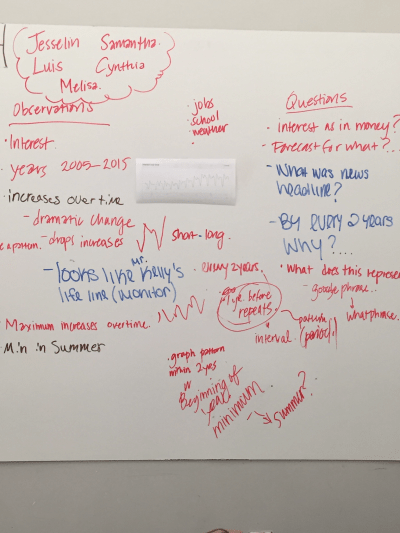 Jesselin Samantha.
Luis Cynthia
Melisa.
Observations
• Interest.
years 2005-2015
• increases over time
- dramatic change
- drops increases
short-long.
- looks like Mr. Kelly's
life line (monitor)
Maximum increases overtime.
• Min in Summer
• jobs
school
weather
•
every 2 years.
1 yr. before
repeats.
interval.
pattern
(period.)
• graph pattern
within 2 yrs
Beginning of
year
minimum.
→ summer?
Questions
• interest as in money?
- Forecast for what?...
- What was news
headline?
- By every 2 years
Why?....
• What does this represe
- google phrase..
what phrase.